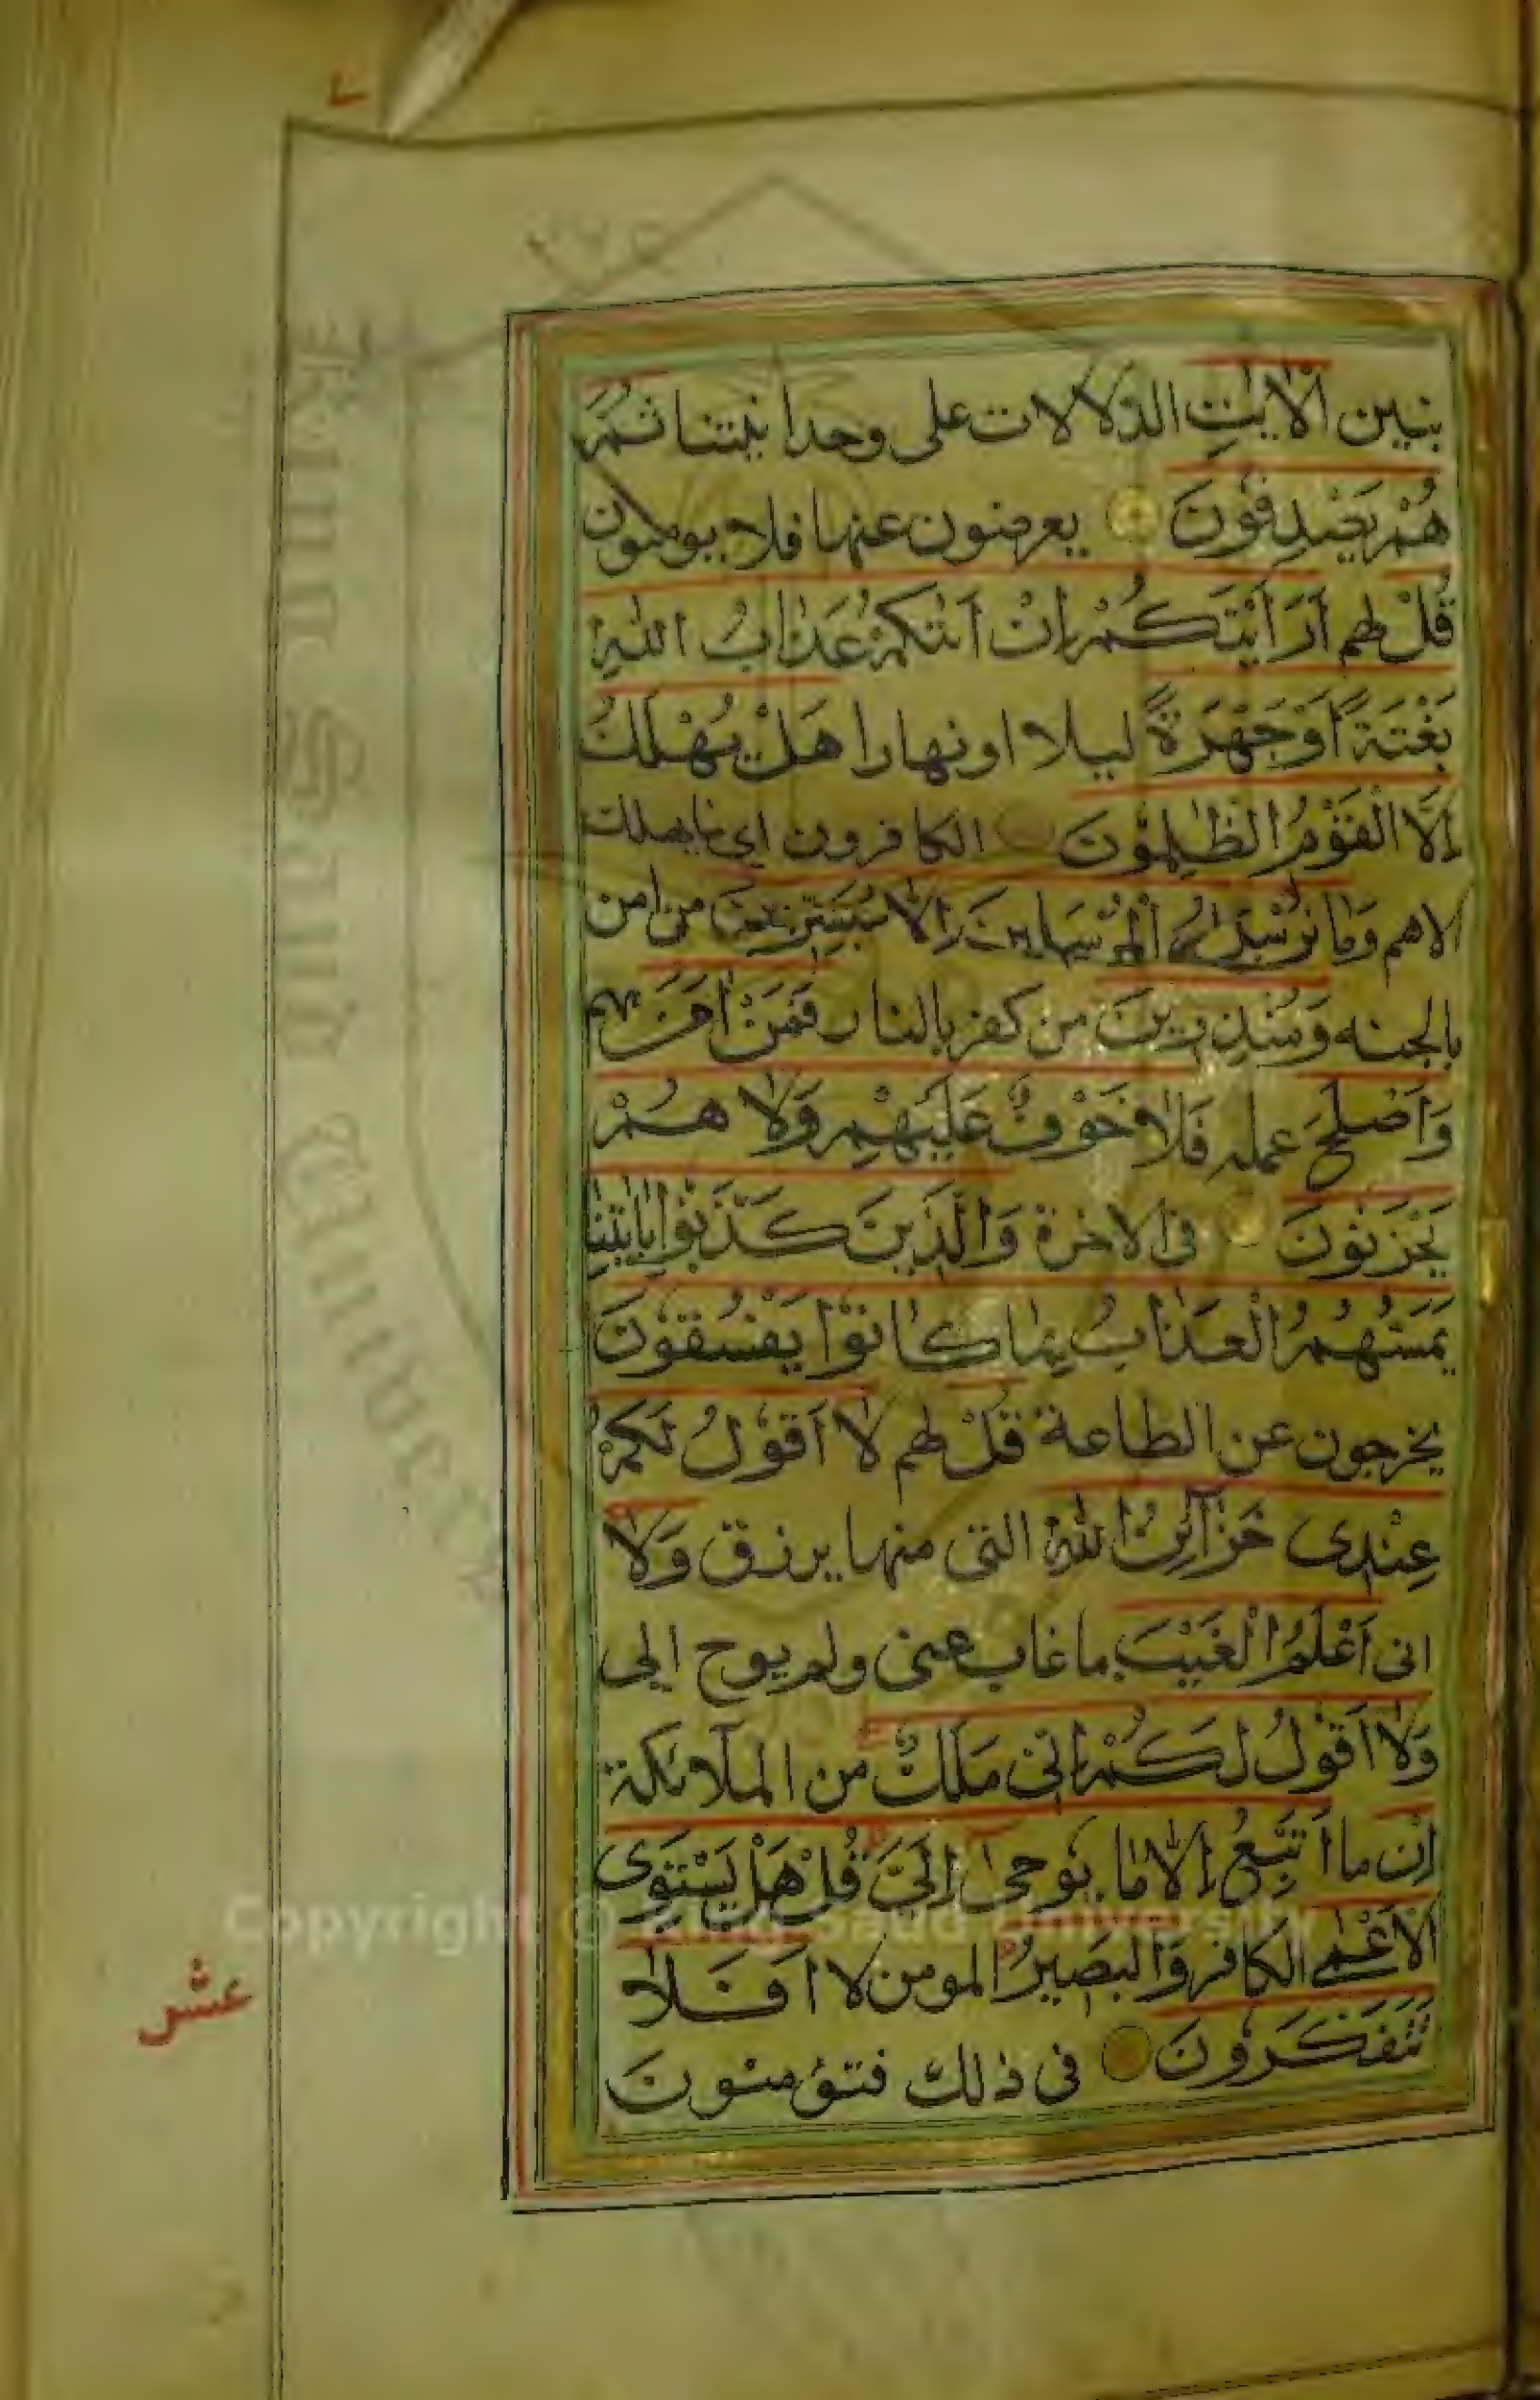 نبين الْاٰيٰتِ الدلالات على وحدانيتنا ثُمَّ
هُمْ يَصْدِفُونَ يعرضون عنها فلا يومنون
قُلْ لهم اَرَاَيْتَكُمْ اِنْ اَتٰىكُمْ عَذَابُ اللهِ
بَغْتَةً اَوْ جَهْرَةً ليلا او نهارا هَلْ يُهْلَكُ
اِلَّا الْقَوْمُ الظّٰلِمُوْنَ الكافرون اى مايهلك
الاهم وَمَا نُرْسِلُ الْمُرْسَلِينَ اِلَّا مُبَشِّرِينَ من امن
بالجنه وَمُنْذِرِينَ من كفر بالنار فَمَنْ اٰمَنَ بهم
وَاَصْلَحَ عمله فَلَا خَوْفٌ عَلَيْهِمْ وَلَا هُمْ
يَحْزَنُوْنَ فى الاخرة وَالَّذِينَ كَذَّبُوْا بِاٰيٰتِنَا
يَمَسُّهُمُ الْعَذَابُ بِمَا كَانُوْا يَفْسُقُوْنَ
يخرجون عن الطاعة قُلْ لهم لَا اَقُوْلُ لَكُمْ
عِنْدِى خَزَآئِنُ اللهِ التى منها يرزق وَلَا
انى اَعْلَمُ الْغَيْبَ ماغاب عنى ولم يوح الى
وَلَا اَقُوْلُ لَكُمْ اِنِّى مَلَكٌ من الملآئكة
اِنْ ما اَتَّبِعُ اِلَّا مَا يُوحٰى اِلَىَّ قُلْ هَلْ يَسْتَوِى
الْاَعْمٰى الكافر وَالْبَصِيرُ المومن لا اَفَلَا
تَتَفَكَّرُوْنَ فى ذلك فتؤمنونَ
عشر
Copyright © King Saud University